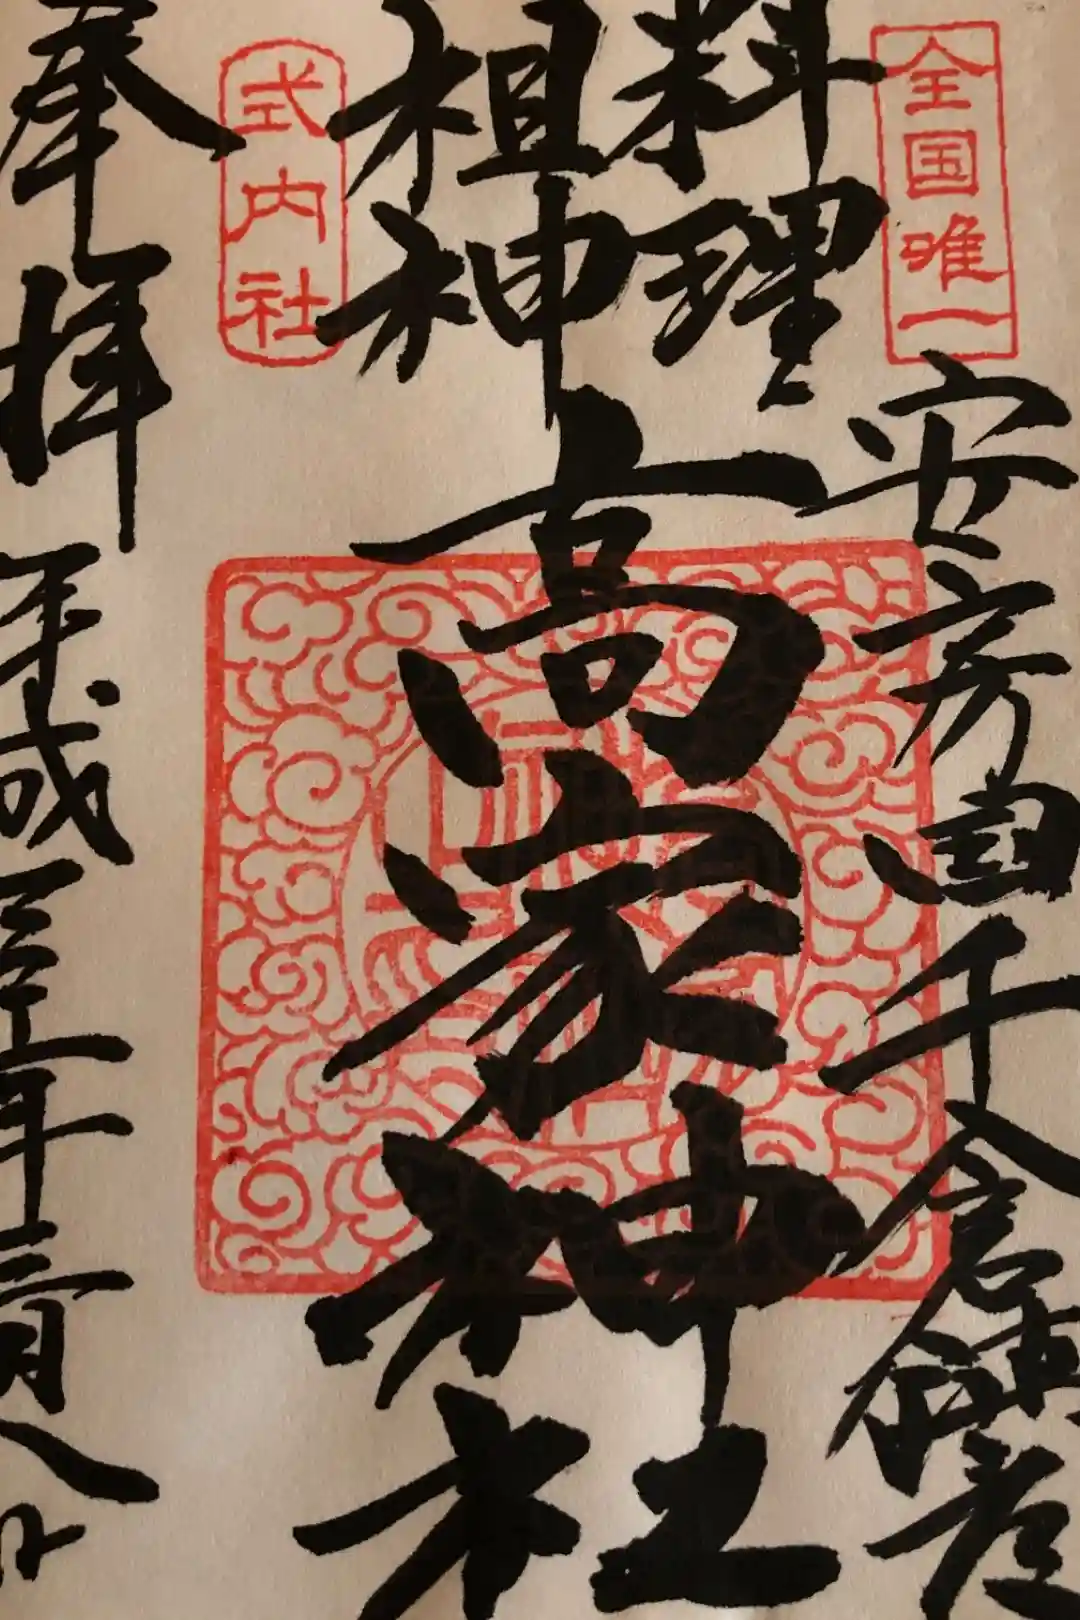 全国唯一
安房国千倉鎮座
料理
祖神
高家神社
式内社
奉拝
平成三十年一月八日